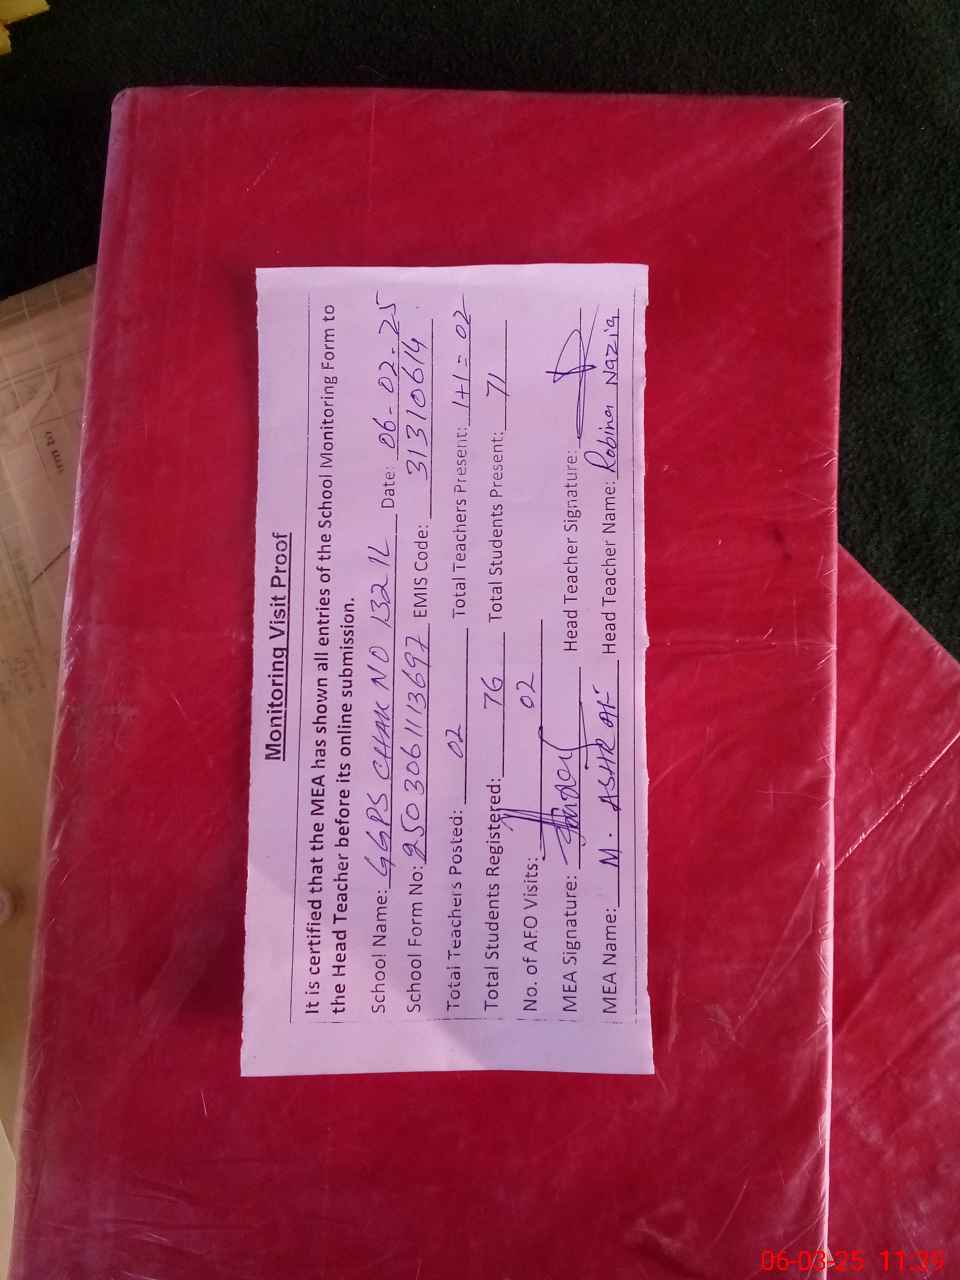 Monitoring Visit Proof
It is certified that the MEA has shown all entries of the School Monitoring Form to
the Head Teacher before its online submission.
School Name: GGPS CHAK NO 132 1L Date: 06-02-25
School Form No: 2503061113697 EMIS Code: 31310614
Total Teachers Posted: 02 Total Teachers Present: 1+1=02
Total Students Registered: 76 Total Students Present: 71
No. of AEO Visits: 02
MEA Signature: Head Teacher Signature:
MEA Name: M. ASHRAF Head Teacher Name: Robina Nazia
06-03-25 11:29